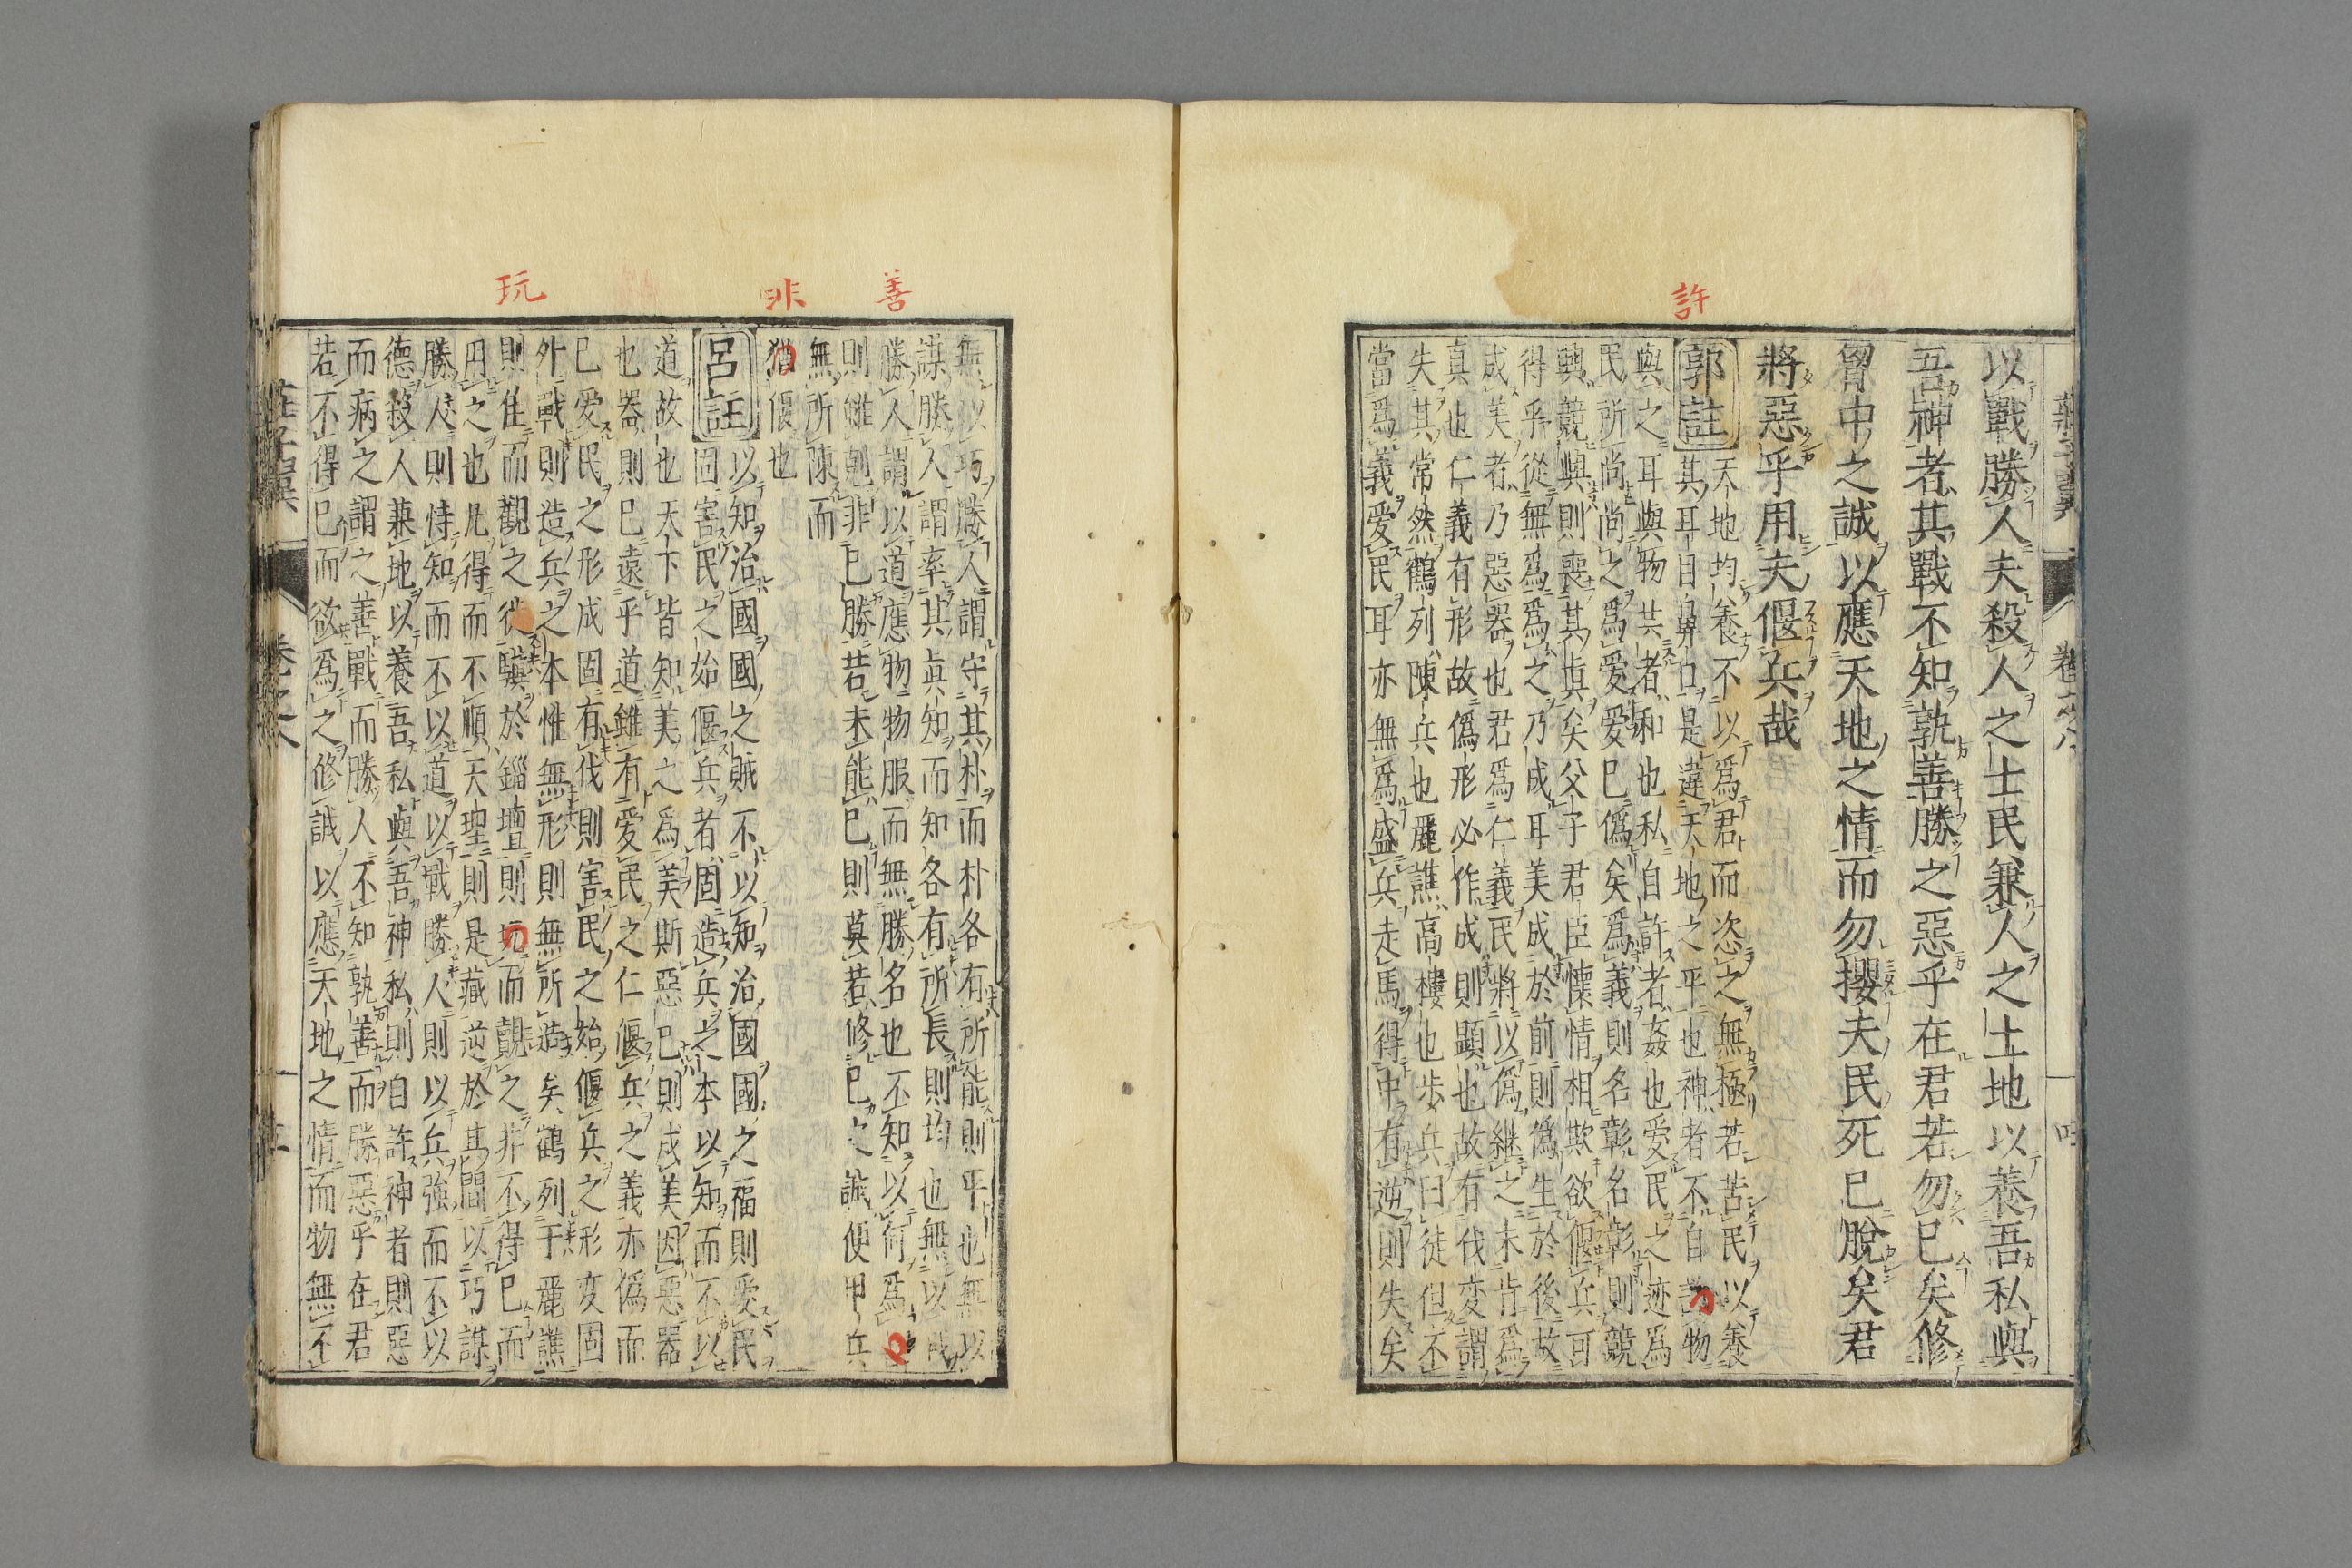 許
以戰勝人夫殺人之士民兼人之土地以養吾私與
吾神者其戰不知孰善勝之惡乎在君若勿已矣修
胷中之誠以應天地之情而勿攖夫民死已脫矣君
將惡乎用夫偃兵哉
郭註
天地均養不以為君而恣之無極若苦民以養
其耳目鼻口是違天地之平也神者不自物
與之耳與物共者和也私自許者姦也愛民之迹為
民所尚尚之為愛愛已偽矣為義則名彰名彰則競
興競興則喪其眞矣父子君臣懷情相欺欲偃兵可
得乎從無為為之乃成耳美成於前則偽生於後故
成美者乃惡器也君為仁義民將以偽繼之未肯為
真也仁義有形故偽形必作成則顯也故有伐変謂
失其常然鶴列陳兵也麗譙高樓也步兵曰徒但不
當為義愛民耳亦無為盛兵走馬得中有逆則失矣
善
非
玩
無以巧勝人謂守其朴而朴各有所能則平也無以
謀勝人謂率其眞知而知各有所長則均也無以戰
勝人謂以道應物物服而無勝名也不知以何為
則雖剋非已勝若未能已則莫若修已之誠便甲兵
無所陳而
猶偃也
呂註
以知治國國之賊不以知治國國之福則愛民
固害民之始偃兵者固造兵之本以知而不以
道故也天下皆知美之為美斯惡已則成美因惡器
也器則已遠乎道雖有愛民之仁偃兵之義亦偽而
已愛民之形成固有伐則害民之始偃兵之形変固
外戰則造兵之本惟無形則無所造矣鶴列于麗譙
則住而觀之徒驥於錙壇則而覿之非不得已而
用之也凡得而不順天理則是藏逆於其間以巧謀
勝人則恃知而不以道以戰勝人則以兵強而不以
德殺人兼地以養吾私與吾神私則自許神者則惡
而病之謂之善戰而勝人不知孰善而勝惡乎在君
若不得已而欲為之修誠以應天地之情而物無不